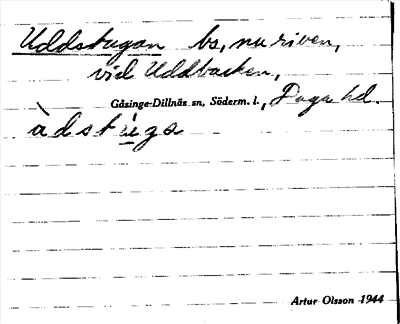 Uddstugan bs, nu riven,
vid Uddbacken,
Gåsinge-Dillnäs sn, Söderm. l., Daga hd.
àdstu̲ga
Artur Olsson 1944